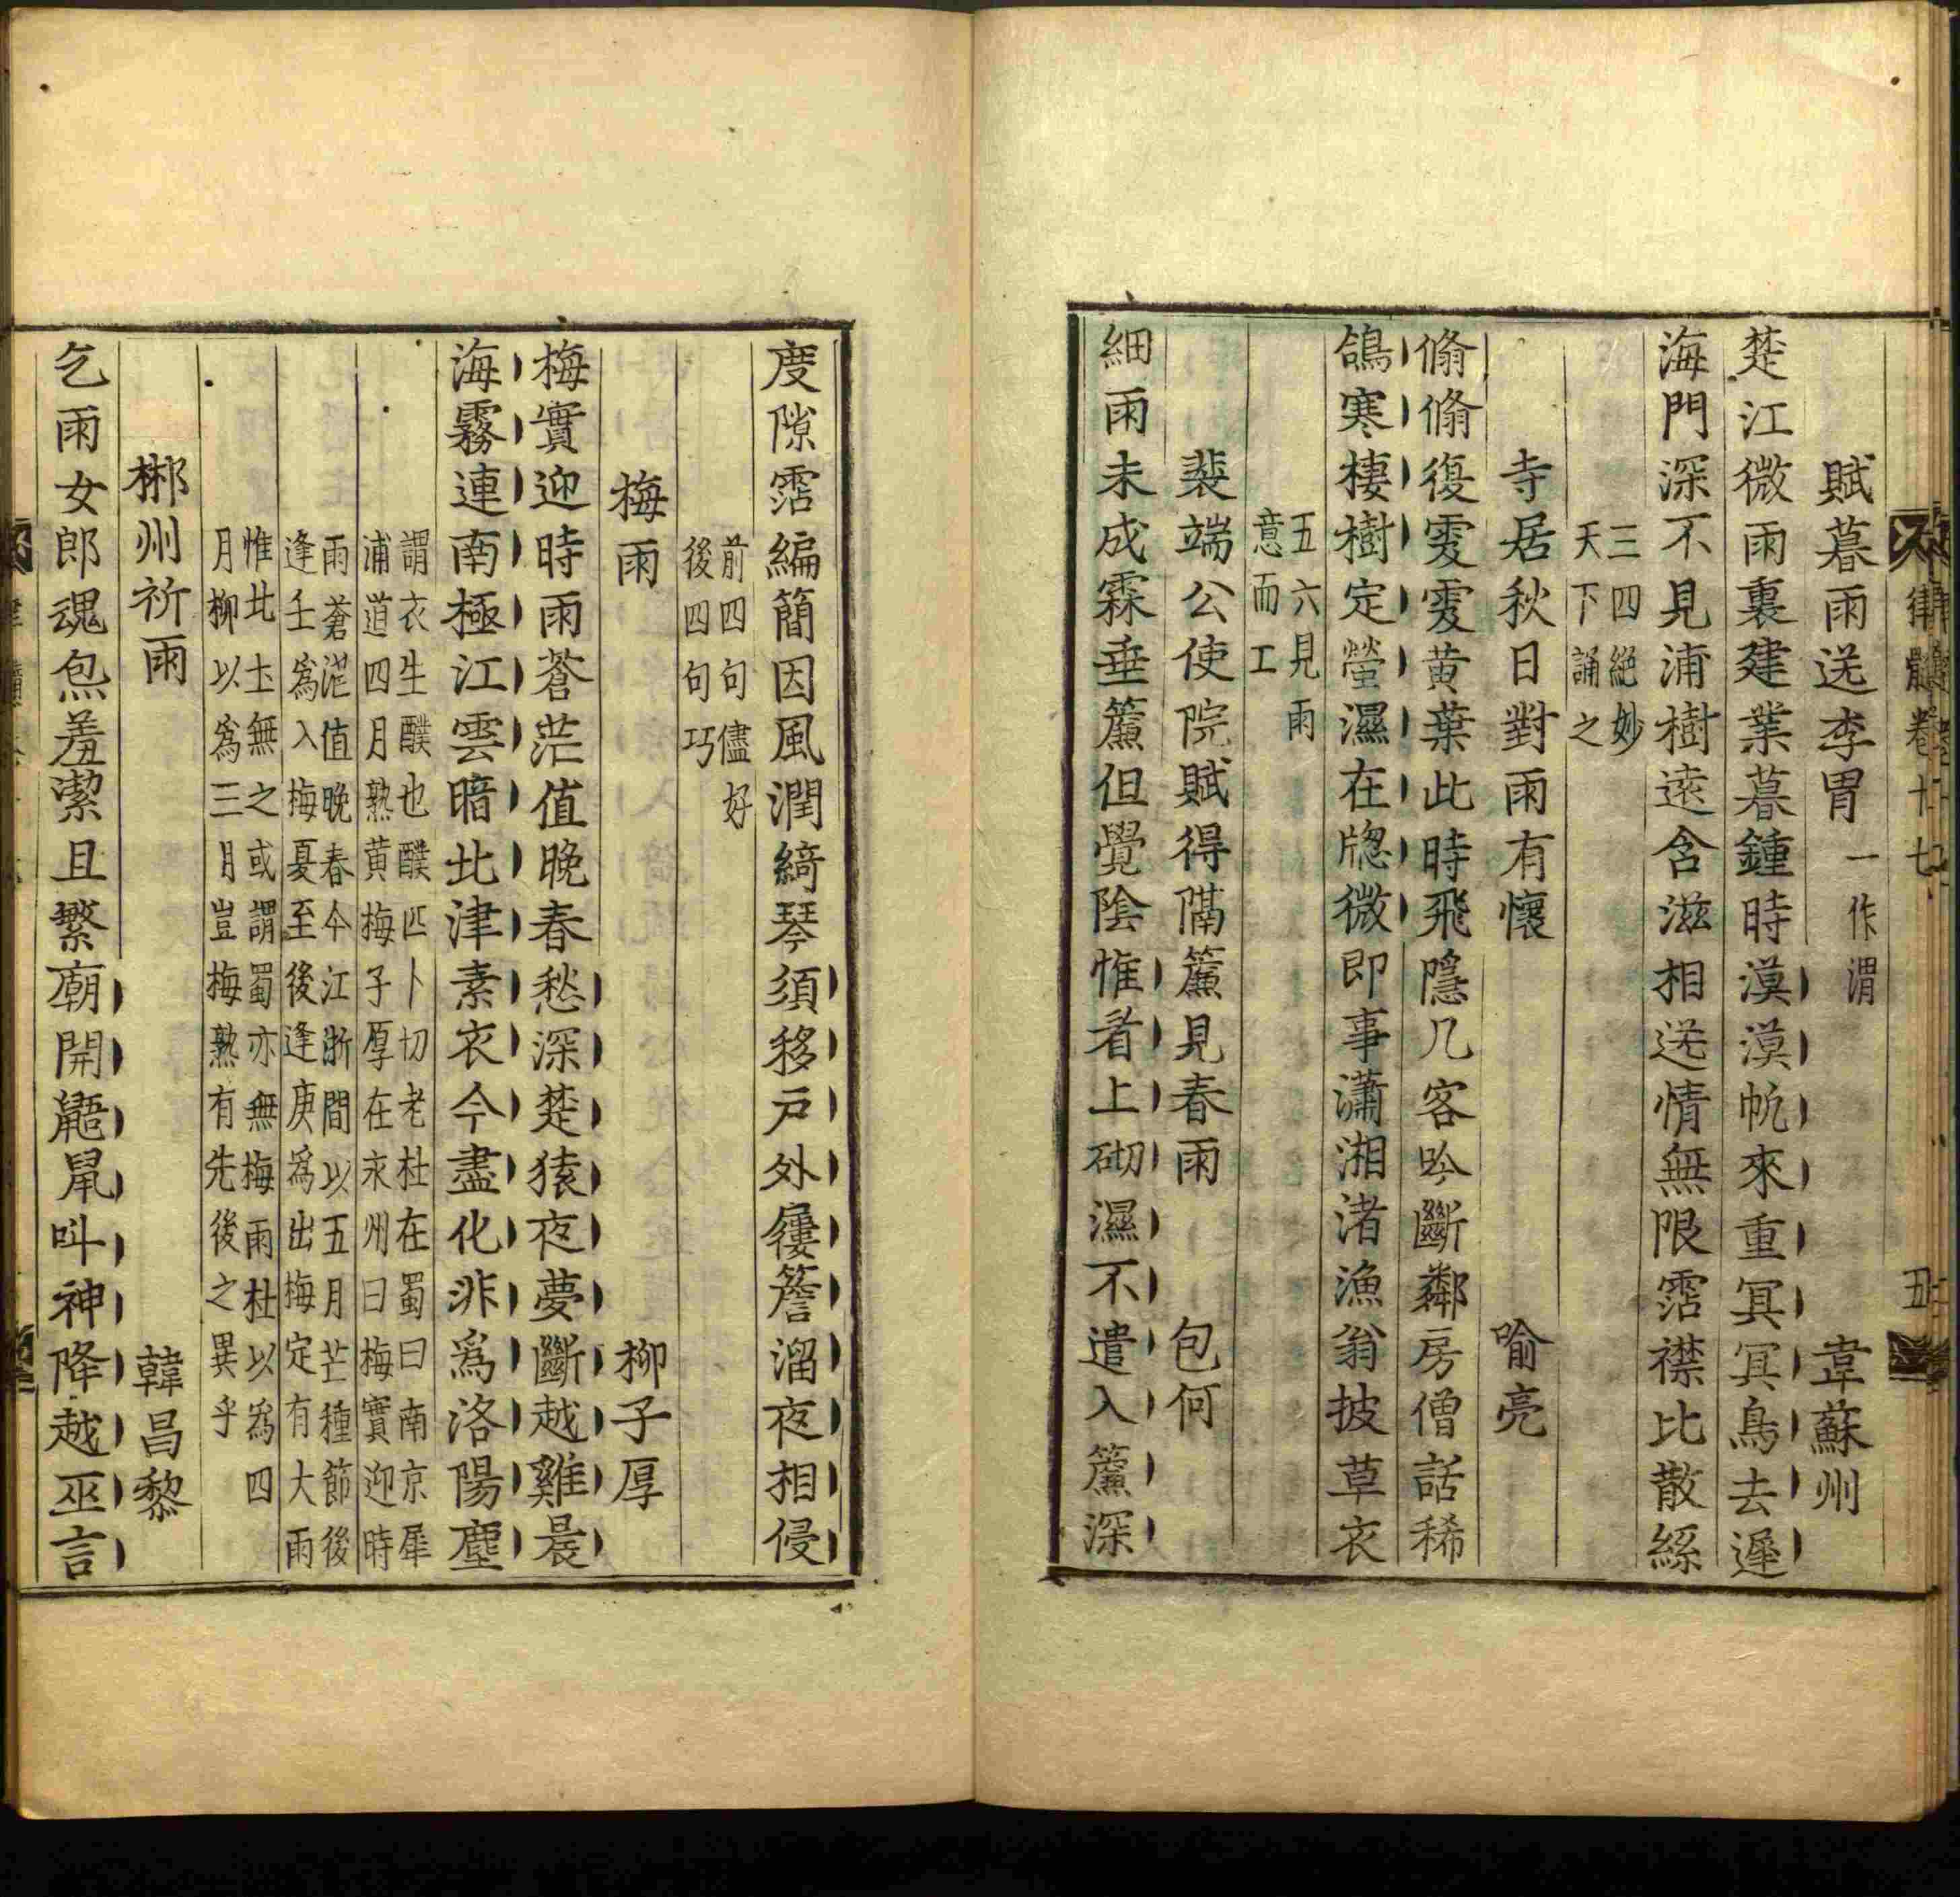 律髓卷十七 五
賦暮雨送李冑 一作渭 韋蘇州
楚江微雨裏建業暮鍾時漠漠帆來重冥冥鳥去遲
海門深不見浦樹遠含滋相送情無限霑襟比散絲
三四絕妙
天下誦之
寺居秋日對雨有懷 喻亮
翛翛復霎霎黄葉此時飛隱几客吟斷鄰房僧話稀
鴿寒棲樹定螢濕在牕微即事瀟湘渚漁翁披草衣
五六見雨
意而工
裴端公使院賦得隔簾見春雨 包何
細雨未成霖垂簾但覺陰惟看上砌濕不遣入簾深
度隙霑編簡因風潤綺琴須移戸外屨簷溜夜相侵
前四句儘好
後四句巧
梅雨 柳子厚
梅實迎時雨蒼茫值晚春愁深楚猿夜夢斷越雞晨
海霧連南極江雲暗北津素衣今盡化非爲洛陽塵
謂衣生醭也醭匹卜切老杜在蜀曰南京犀
浦道四月熟黄梅子厚在永州曰梅實迎時
雨蒼茫值晚春今江浙間以五月芒種節後
逢壬爲入梅夏至後逢庚爲出梅定有大雨
惟北土無之或謂蜀亦無梅雨杜以爲四
月柳以爲三月豈梅熟有先後之異乎
郴州祈雨 韓昌黎
乞雨女郎魂炰羞潔且繁廟開鼯鼠叫神降越巫言